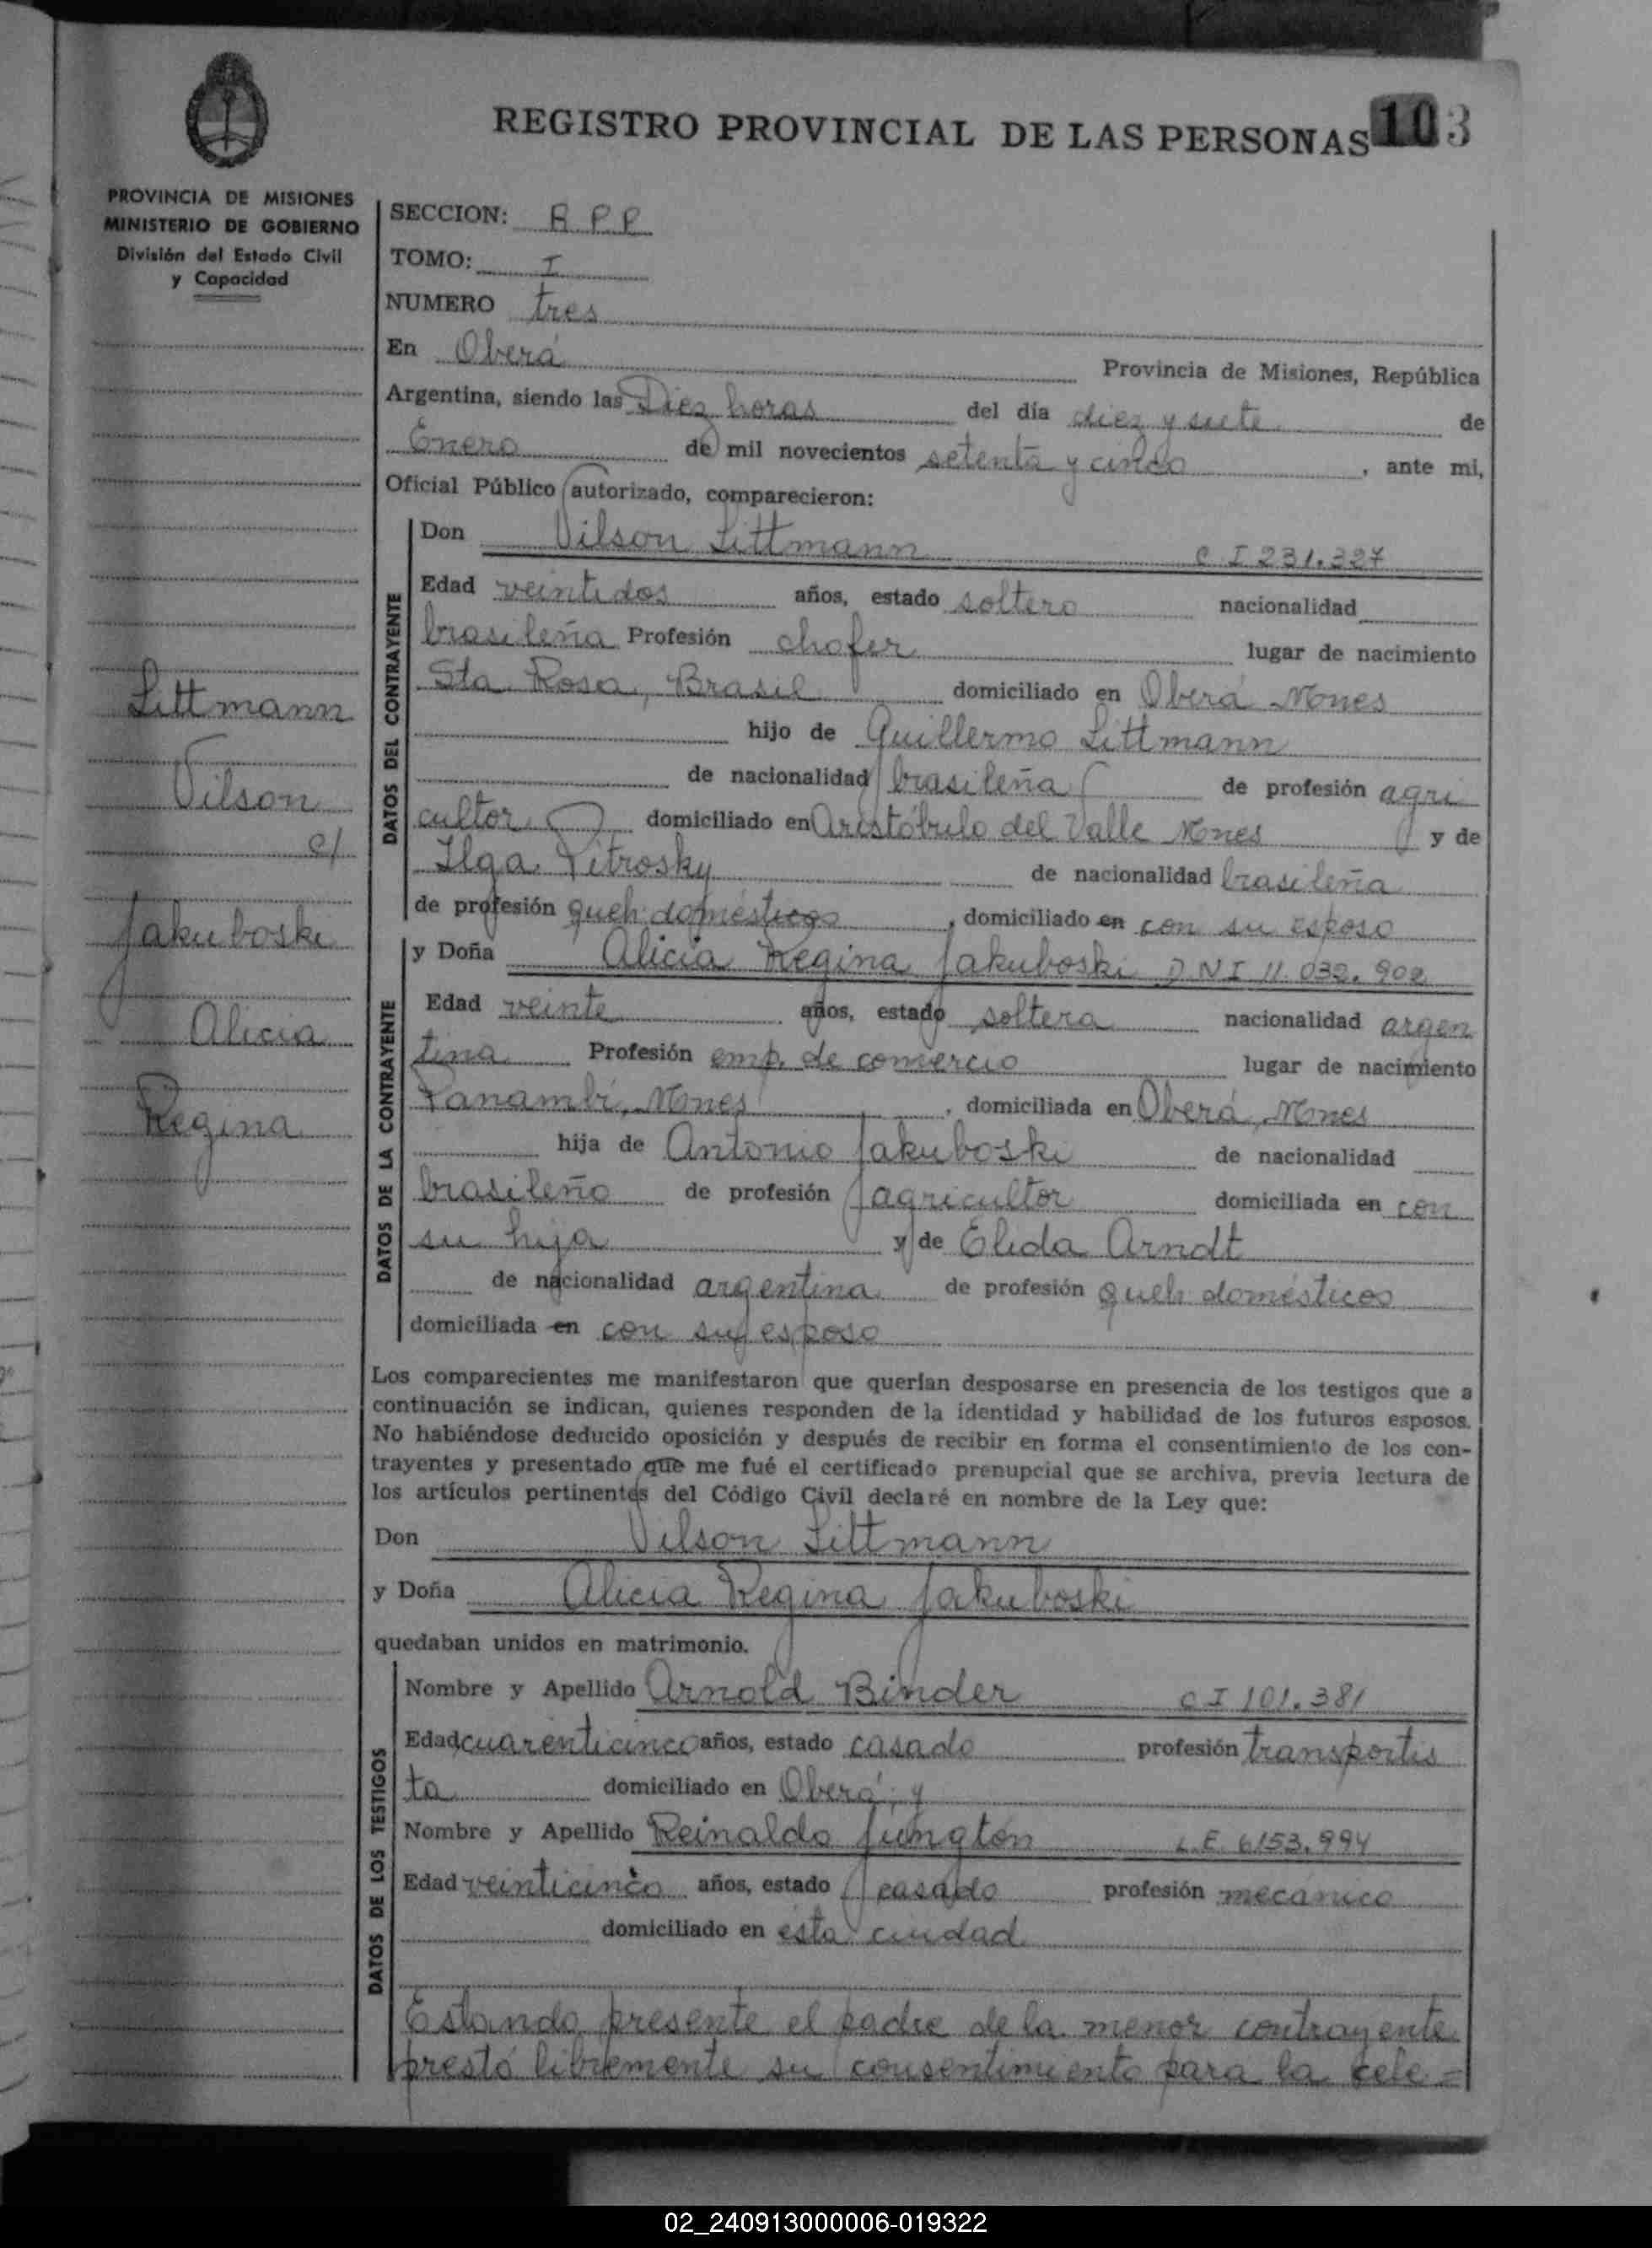 REGISTRO PROVINCIAL DE LAS PERSONAS 103
PROVINCIA DE MISIONES
MINISTERIO DE GOBIERNO
División del Estado Civil
y Capacidad
Littmann
Vilson
c/
Jakuboski
Alicia
Regina
SECCION: R P P
TOMO: I
NUMERO tres
En Oberá Provincia de Misiones, República
Argentina, siendo las Diez horas del día diez y siete de
Enero de mil novecientos setenta y cinco, ante mi,
Oficial Público autorizado, comparecieron:
DATOS DEL CONTRAYENTE
Don Vilson Littmann C I 231.327
Edad veintidos años, estado soltero nacionalidad
brasileña Profesión chofer lugar de nacimiento
Sta Rosa, Brasil domiciliado en Oberá Mnes
hijo de Guillermo Littmann
de nacionalidad brasileña de profesión agri
cultor domiciliado en Aristóbulo del Valle Mnes y de
Ilga Pitrosky de nacionalidad brasileña
de profesión queh. domésticos, domiciliado en con su esposo
DATOS DE LA CONTRAYENTE
y Doña Alicia Regina Jakuboski D N I 11.032.902
Edad veinte años, estado soltera nacionalidad argen
tina Profesión emp. de comercio lugar de nacimiento
Panambí, Mnes, domiciliada en Oberá, Mnes
hija de Antonio Jakuboski de nacionalidad
brasileño de profesión agricultor domiciliada en con
su hija y de Elida Arndt
de nacionalidad argentina de profesión queh domésticos
domiciliada en con su esposo
Los comparecientes me manifestaron que querían desposarse en presencia de los testigos que a
continuación se indican, quienes responden de la identidad y habilidad de los futuros esposos.
No habiéndose deducido oposición y después de recibir en forma el consentimiento de los con-
trayentes y presentado que me fué el certificado prenupcial que se archiva, previa lectura de
los artículos pertinentes del Código Civil declaré en nombre de la Ley que:
Don Vilson Littmann
y Doña Alicia Regina Jakuboski
quedaban unidos en matrimonio.
DATOS DE LOS TESTIGOS
Nombre y Apellido Arnold Binder C I 101.381
Edad cuarenticinco años, estado casado profesión transportis
ta domiciliado en Oberá, y
Nombre y Apellido Reinaldo Jungton L.E. 6153.994
Edad veinticinco años, estado casado profesión mecánico
domiciliado en esta ciudad
Estando presente el padre de la menor contrayente
prestó libremente su consentimiento para la cele=
02_240913000006-019322